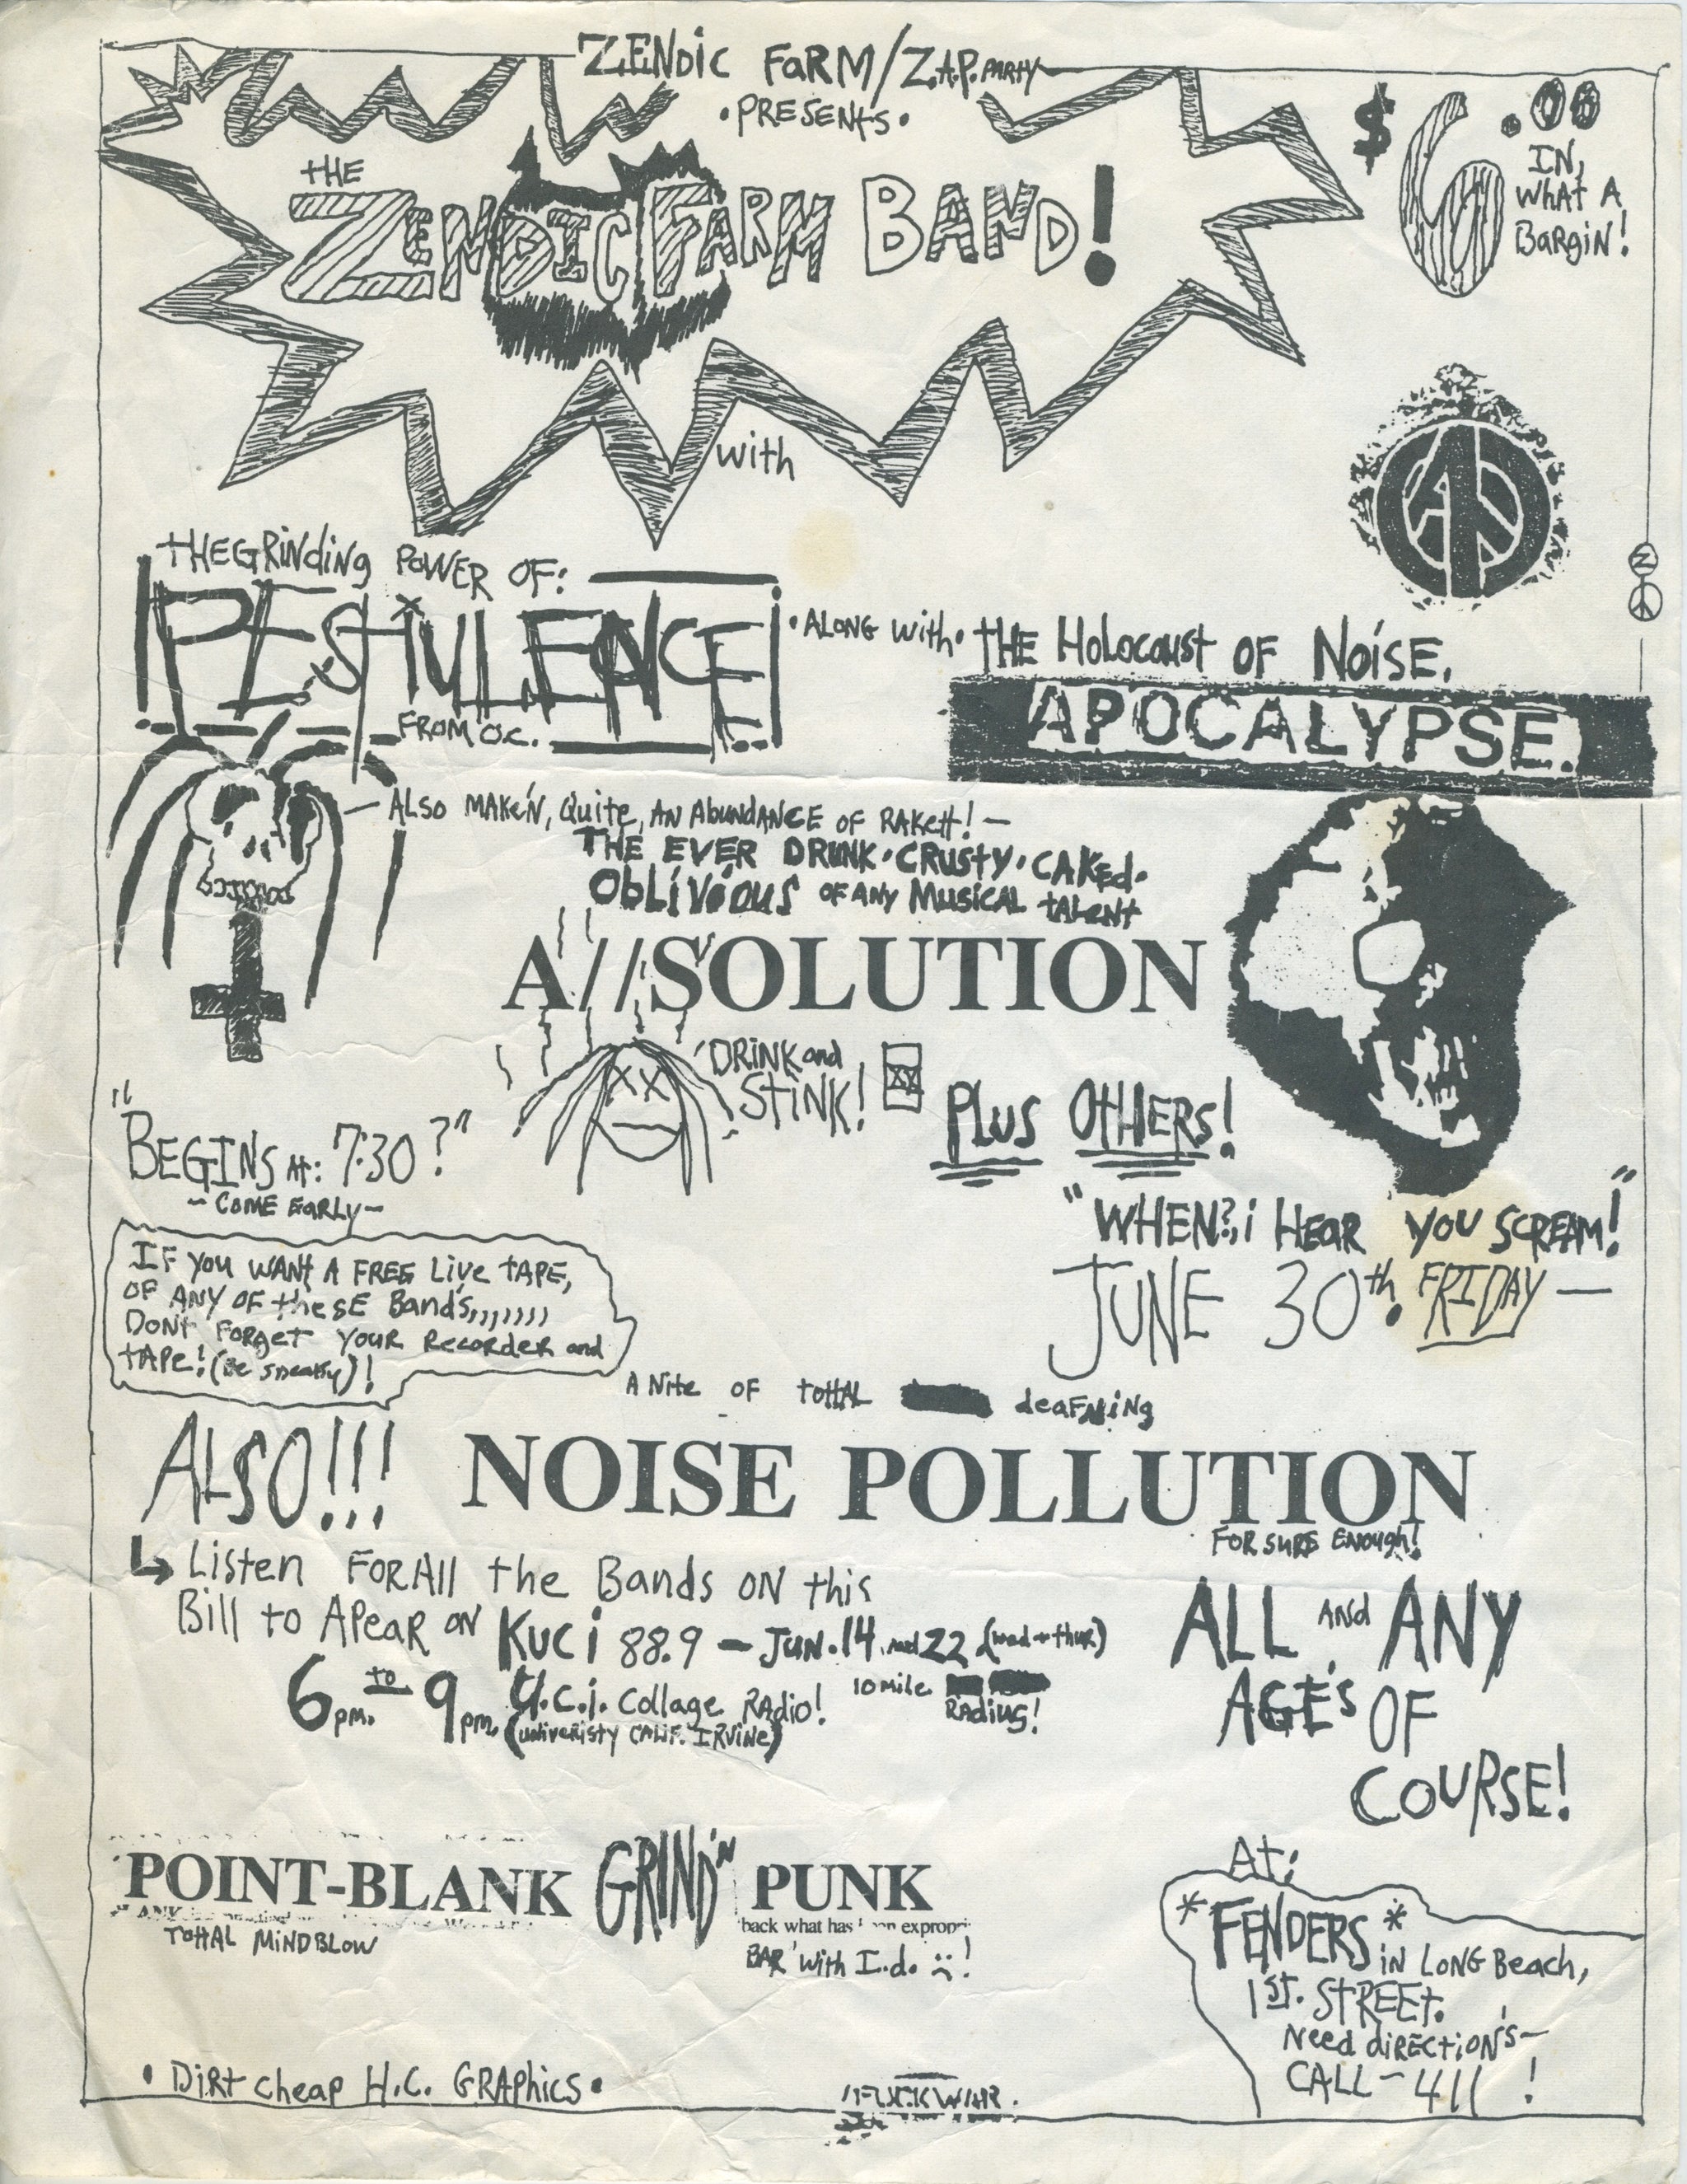 ZENDIC FARM/Z.A.P. PARTY
•PRESENTS•
$6.00
IN,
WHAT A
BARGIN!
THE
ZENDIC FARM BAND!
with
THE GRINDING POWER OF:
PESTULENCE
FROM O.C.
•ALONG with• THE HOLOCAUST OF NOISE,
APOCALYPSE.
— ALSO MAKE'N, Quite, AN AbUNDANCE OF RAKETT! —
THE EVER DRUNK•CRUSTY•CAKED•
OBLIVIOUS OF ANY MUSICAL TALENT
A//SOLUTION
'DRINK and
STINK!
XX
XX
PLUS OTHERS!
"BEGINS AT: 7:30?"
~ COME EARLY ~
"WHEN?, i HEAR YOU SCREAM!"
JUNE 30th. FRIDAY —
IF YOU WANT A FREE LIVE TAPE,
OF ANY OF these Bands,,,,,,,,
DONT FORGET YOUR RECORDER and
TAPE! (Be sneaky)!
A Nite OF TOTTAL deaFNiNg
ALSO!!! NOISE POLLUTION
FOR SURE ENOUGH!
Listen FOR All the Bands ON this
Bill to APEAR ON KUCi 88.9 – JUN. 14 and 22 (wed → thur)
6pm. to 9pm. U.C.I. Collage RAdio! 10 mile RADIUS!
(univeristy CALIF. IRVINE)
ALL AND ANY
AGE'S OF
COURSE!
POINT-BLANK GRIND'N PUNK
back what has
TOTTAL MINDBLOW
BAR with I.d. !
At:
*FENDERS* IN LONG Beach,
1ST. STREET.
Need diRECTiON'S—
CALL – 411 !
• DIRT cheap H.C. GRAPhICS •
FUCK WAR.